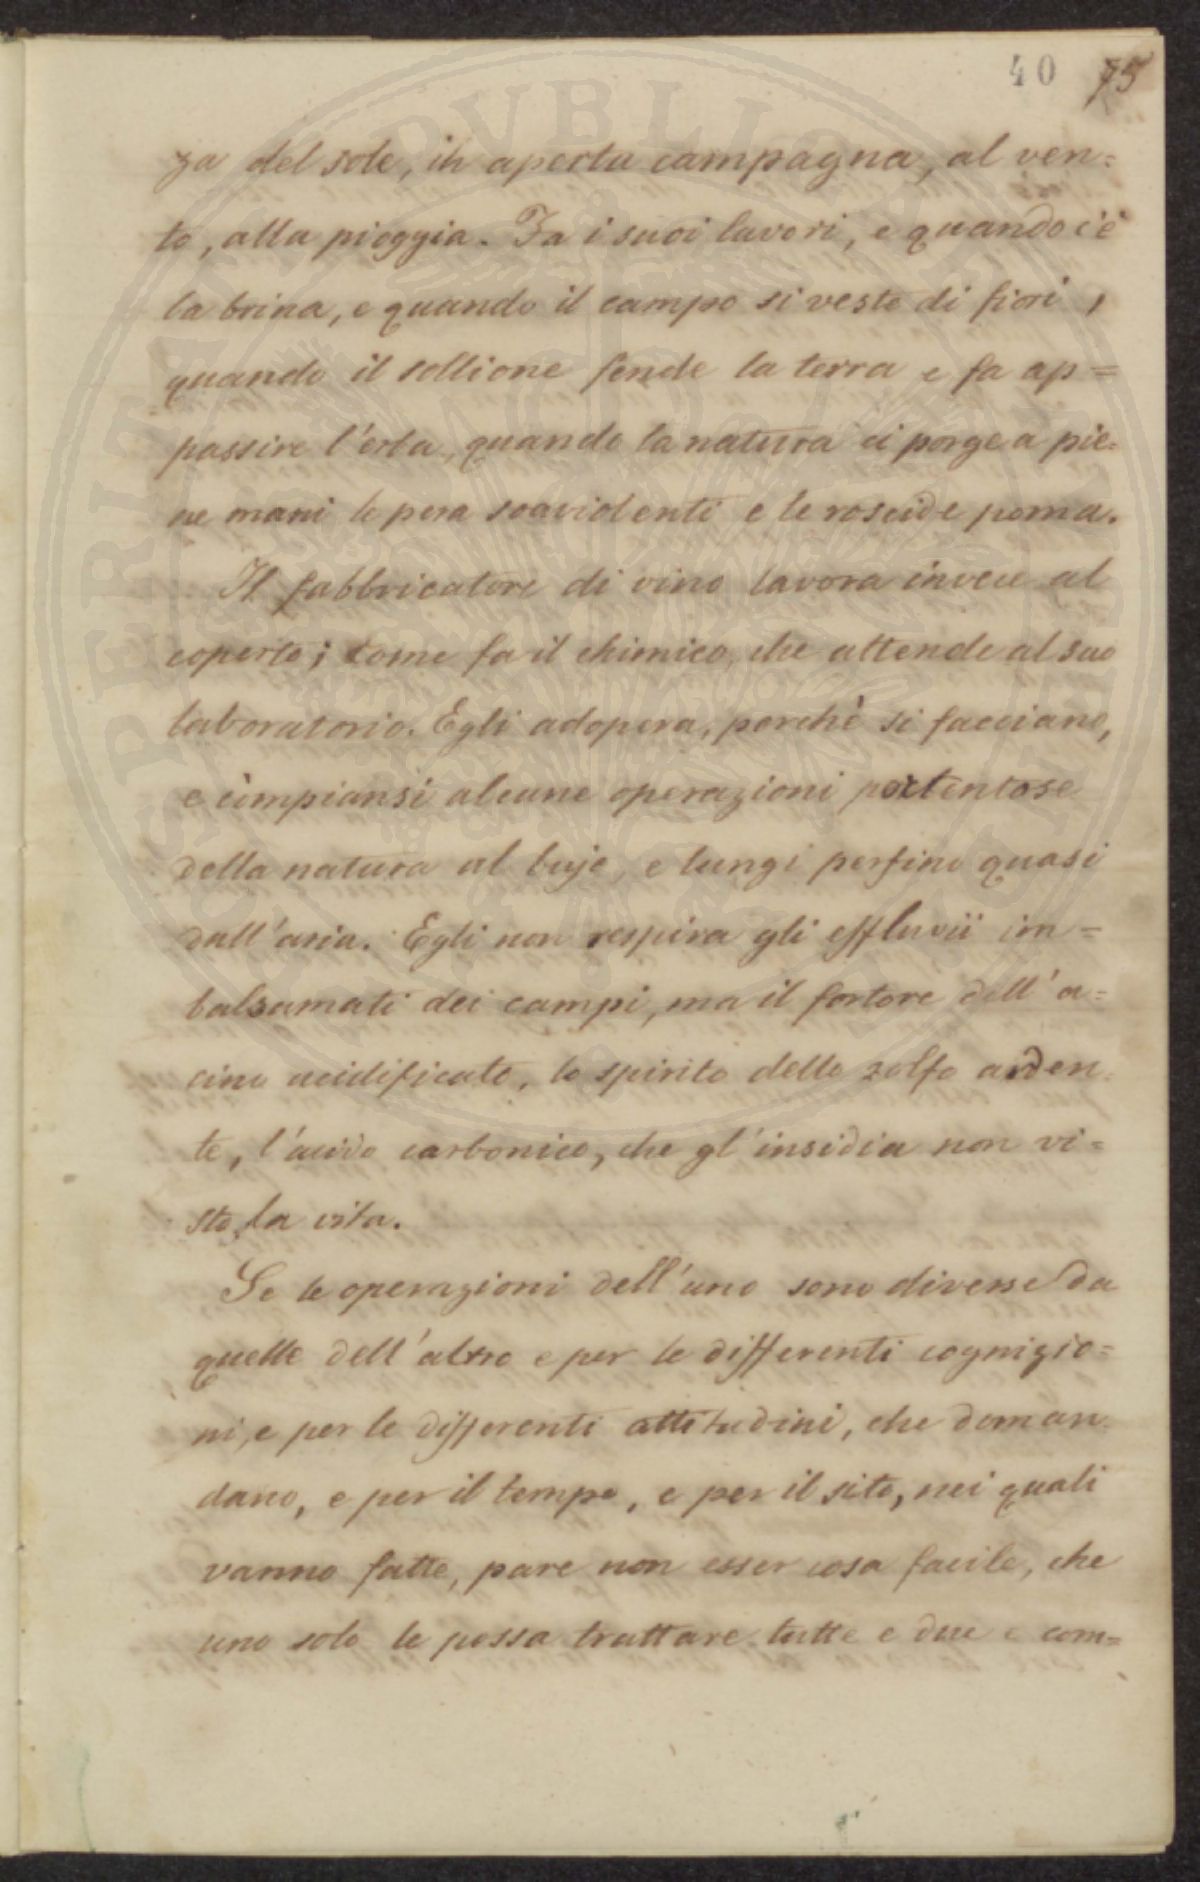 40 75
za del sole, in aperta campagna, al ven=
to, alla pioggia. Fa i suoi lavori, e quando c'è
la brina, e quando il campo si veste di fiori,
quando il sollione fende la terra e fa ap=
passire l'erba, quando la natura ci porge a pie=
ne mani le pera soaviolenti e le roscide poma.
Il fabbricatore di vino lavora invece al
coperto; come fa il chimico, che attende al suo
laboratorio. Egli adopera, perchè si facciano,
e còmpiansi alcune operazioni portentose
della natura al bujo, e lungi perfino quasi
dall'aria. Egli non respira gli effluvii im=
balsamati dei campi, ma il fortore dell'a=
cino acidificato, lo spirito dello zolfo arden=
te, l'acido carbonico, che gl'insidia non vi=
sto, la vita.
Se le operazioni dell'uno sono diverse da
quelle dell'altro e per le differenti cognizio=
ni, e per le differenti attitudini, che doman=
dano, e per il tempo, e per il sito, nei quali
vanno fatte, pare non esser cosa facile, che
uno solo le possa trattare tutte e due e com=